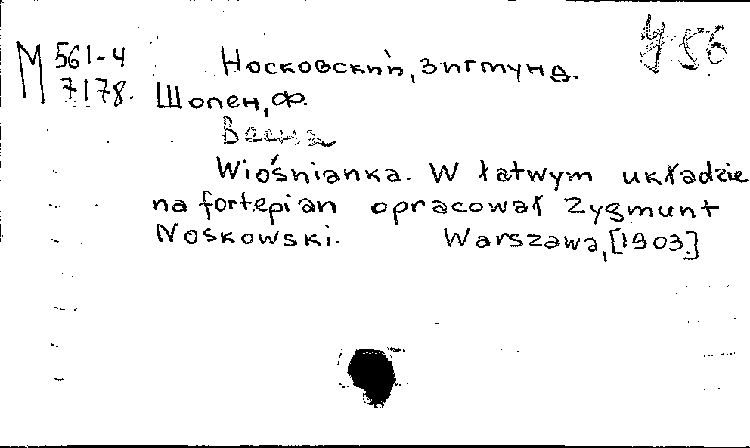 М 561-4 Носковский, Зигмунд. У 56
7178. Шопен, Ф.
Весна
Wiośnianka. W łatwym układzie
na fortepian opracował Zygmunt
Noskowski. Warszawa, [1903.]